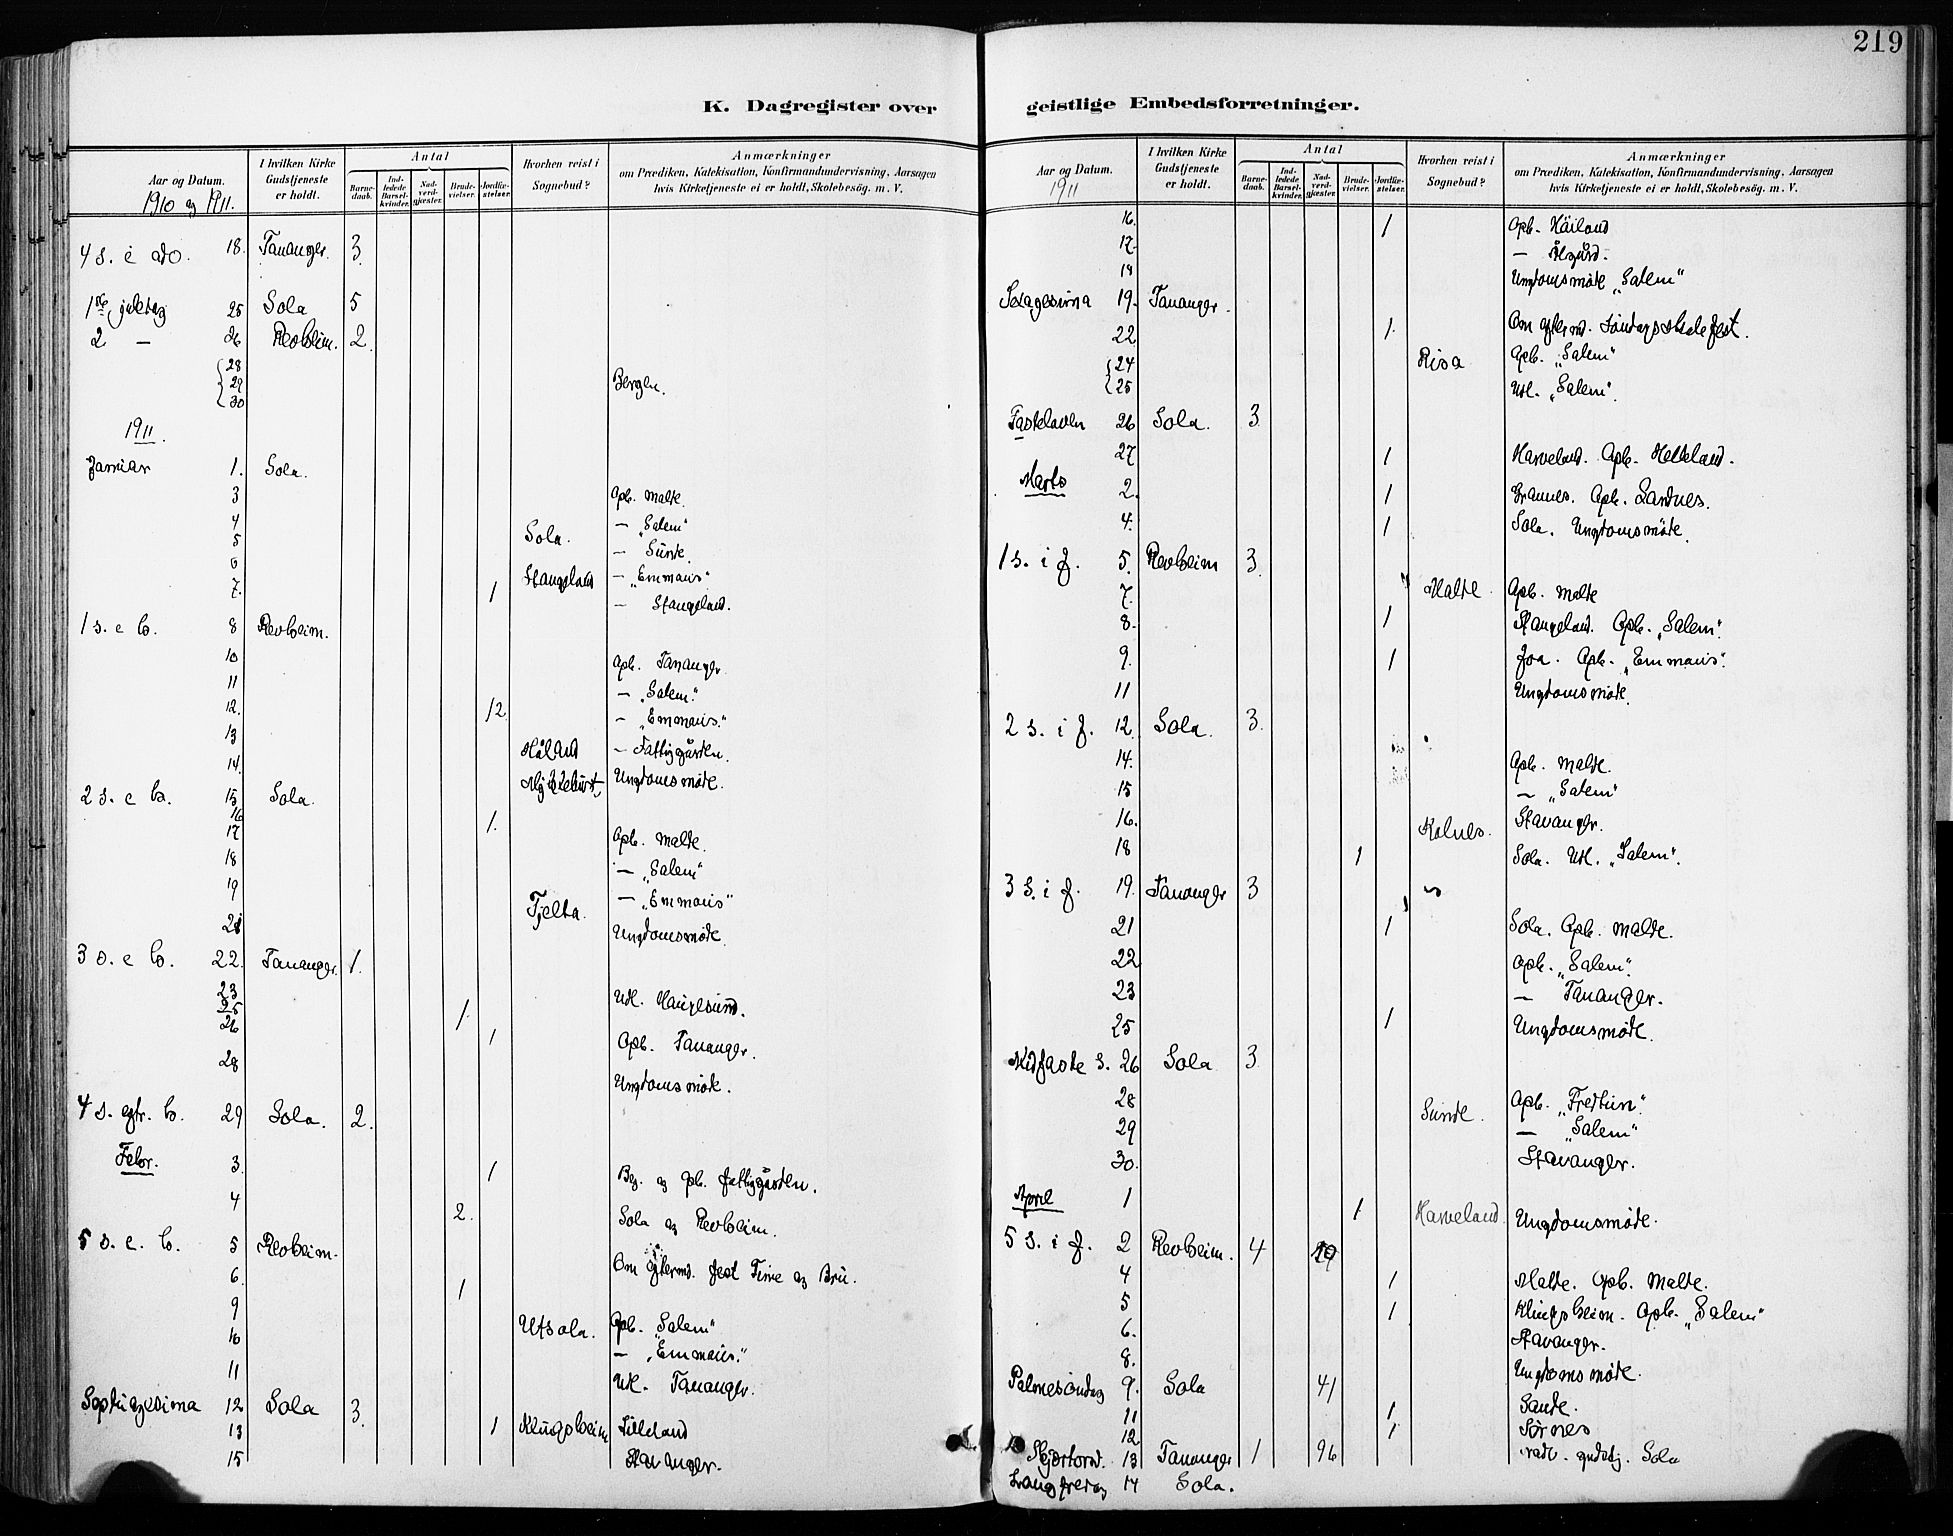 219
K. Dagregister over
geistlige Embedsforretninger.
Aar og Datum. 1910 og 1911.
I hvilken Kirke Gudstjeneste er holdt.
Antal
Barne-daab.
Ind-ledede Barsel-kvinder.
Nad-verd-gjester.
Brude-vielser.
Jordfæ-stelser.
Hvorhen reist i Sognebud?
Anmærkninger
om Prædiken, Katekisation, Konfirmandundervisning, Aarsagen
hvis Kirketjeneste ei er holdt, Skolebesög. m. V.
4 s. i adv. 18. Tananger. 3.
1ste juledag 25 Sola 5
2 — 26 Revheim. 2.
28
29 Bergen.
30
1911.
Januar 1. Sola.
3 Opb. Malde.
4 Sola. — „Salem“
5 — Sunde.
6 Stangeland — „Emmaus“
7. 1 — Stangeland.
1 s. e h. 8 Revheim.
10 Opb. Tananger
11 — „Salem“
12. 12. — „Emmaus.“
13 Håland — Fattiggården.
14. Ungdomsmøde.
2 s. e h. 15 Sola.
16
17 1. Opb. Malde.
18 — „Salem“
19 Tjelta. — „Emmaus“
21 Ungdomsmøde.
3 s. e h. 22. Tananger. 1.
23
25 1. Utl. Haugesund.
26 1 Opb. Tananger.
28 Ungdomsmøde.
4 s. eftr. h. 29 Sola. 2.
Febr. 3. 1 Beg. og opb. fattiggården.
4 2. Sola og Revheim.
5 s. e. h. 5 Revheim.
6. 1 Om efterm. fest Time og Bru.
9 Utsola. Opb. „Salem“
10 — „Emmaus.“
11 Utl. Tananger.
Septuagesima 12 Sola 3.
13 1 Klingsheim Lilleland
15 Stavanger.
Aar og Datum. 1911
I hvilken Kirke Gudstjeneste er holdt.
Antal
Barne-daab.
Ind-ledede Barsel-kvinder.
Nad-verd-gjester.
Brude-vielser.
Jordfæ-stelser.
Hvorhen reist i Sognebud?
Anmærkninger
om Prædiken, Katekisation, Konfirmandundervisning, Aarsagen
hvis Kirketjeneste ei er holdt, Skolebesög. m. V.
16. 1 Opb. Håiland
17. — Ålgård.
18 Ungdomsmöde „Salem“
Sexagesima 19. Tananger.
22 1. Om efterm. Söndagsskolefest.
24 Risa Opb. „Salem“
25 Utl. „Salem“.
Fastelavn 26 Sola. 3.
27 1 Harveland. Opb. Helleland.
Marts 2. 1 Grannes. Opb. Sandnes.
4. 1 Sola. Ungdomsmöde.
1 s. i f. 5. Revheim 3.
7. Malde. Opb. Malde
8. 1 Stangeland. Opb. „Salem“.
9. 1 Joa. Opb. „Emmaus“.
11 Ungdomsmøde.
2 s. i f. 12. Sola. 3.
14. Opb. Malde.
15 — „Salem“
16. Kolnes. Stavanger.
18 1 Sola. Utl. „Salem“.
3 s. i f. 19. Tananger 3
21 1 Sola. Opb. Malde.
22 Opb. „Salem“.
23 — Tananger.
25 1 Ungdomsmøde.
Midfaste s. 26 Sola 3
28 Sunde. Opb. „Fredtun“.
29 — „Salem“
30. Stavanger.
April 1 1 Harveland. Ungdomsmøde.
5 s. i f. 2 Revheim. 4
4 1 Malde. Opb. Malde.
5 1 Klingsheim. Opb. „Salem“
6. Stavanger.
8. Ungdomsmøde.
Palmesöndag 9. Sola 41
11 1 Sande.
12 1 Sørnes
Skjærtorsd. 13 Tananger 1 96 Sola
Langfredag 14 Sola.